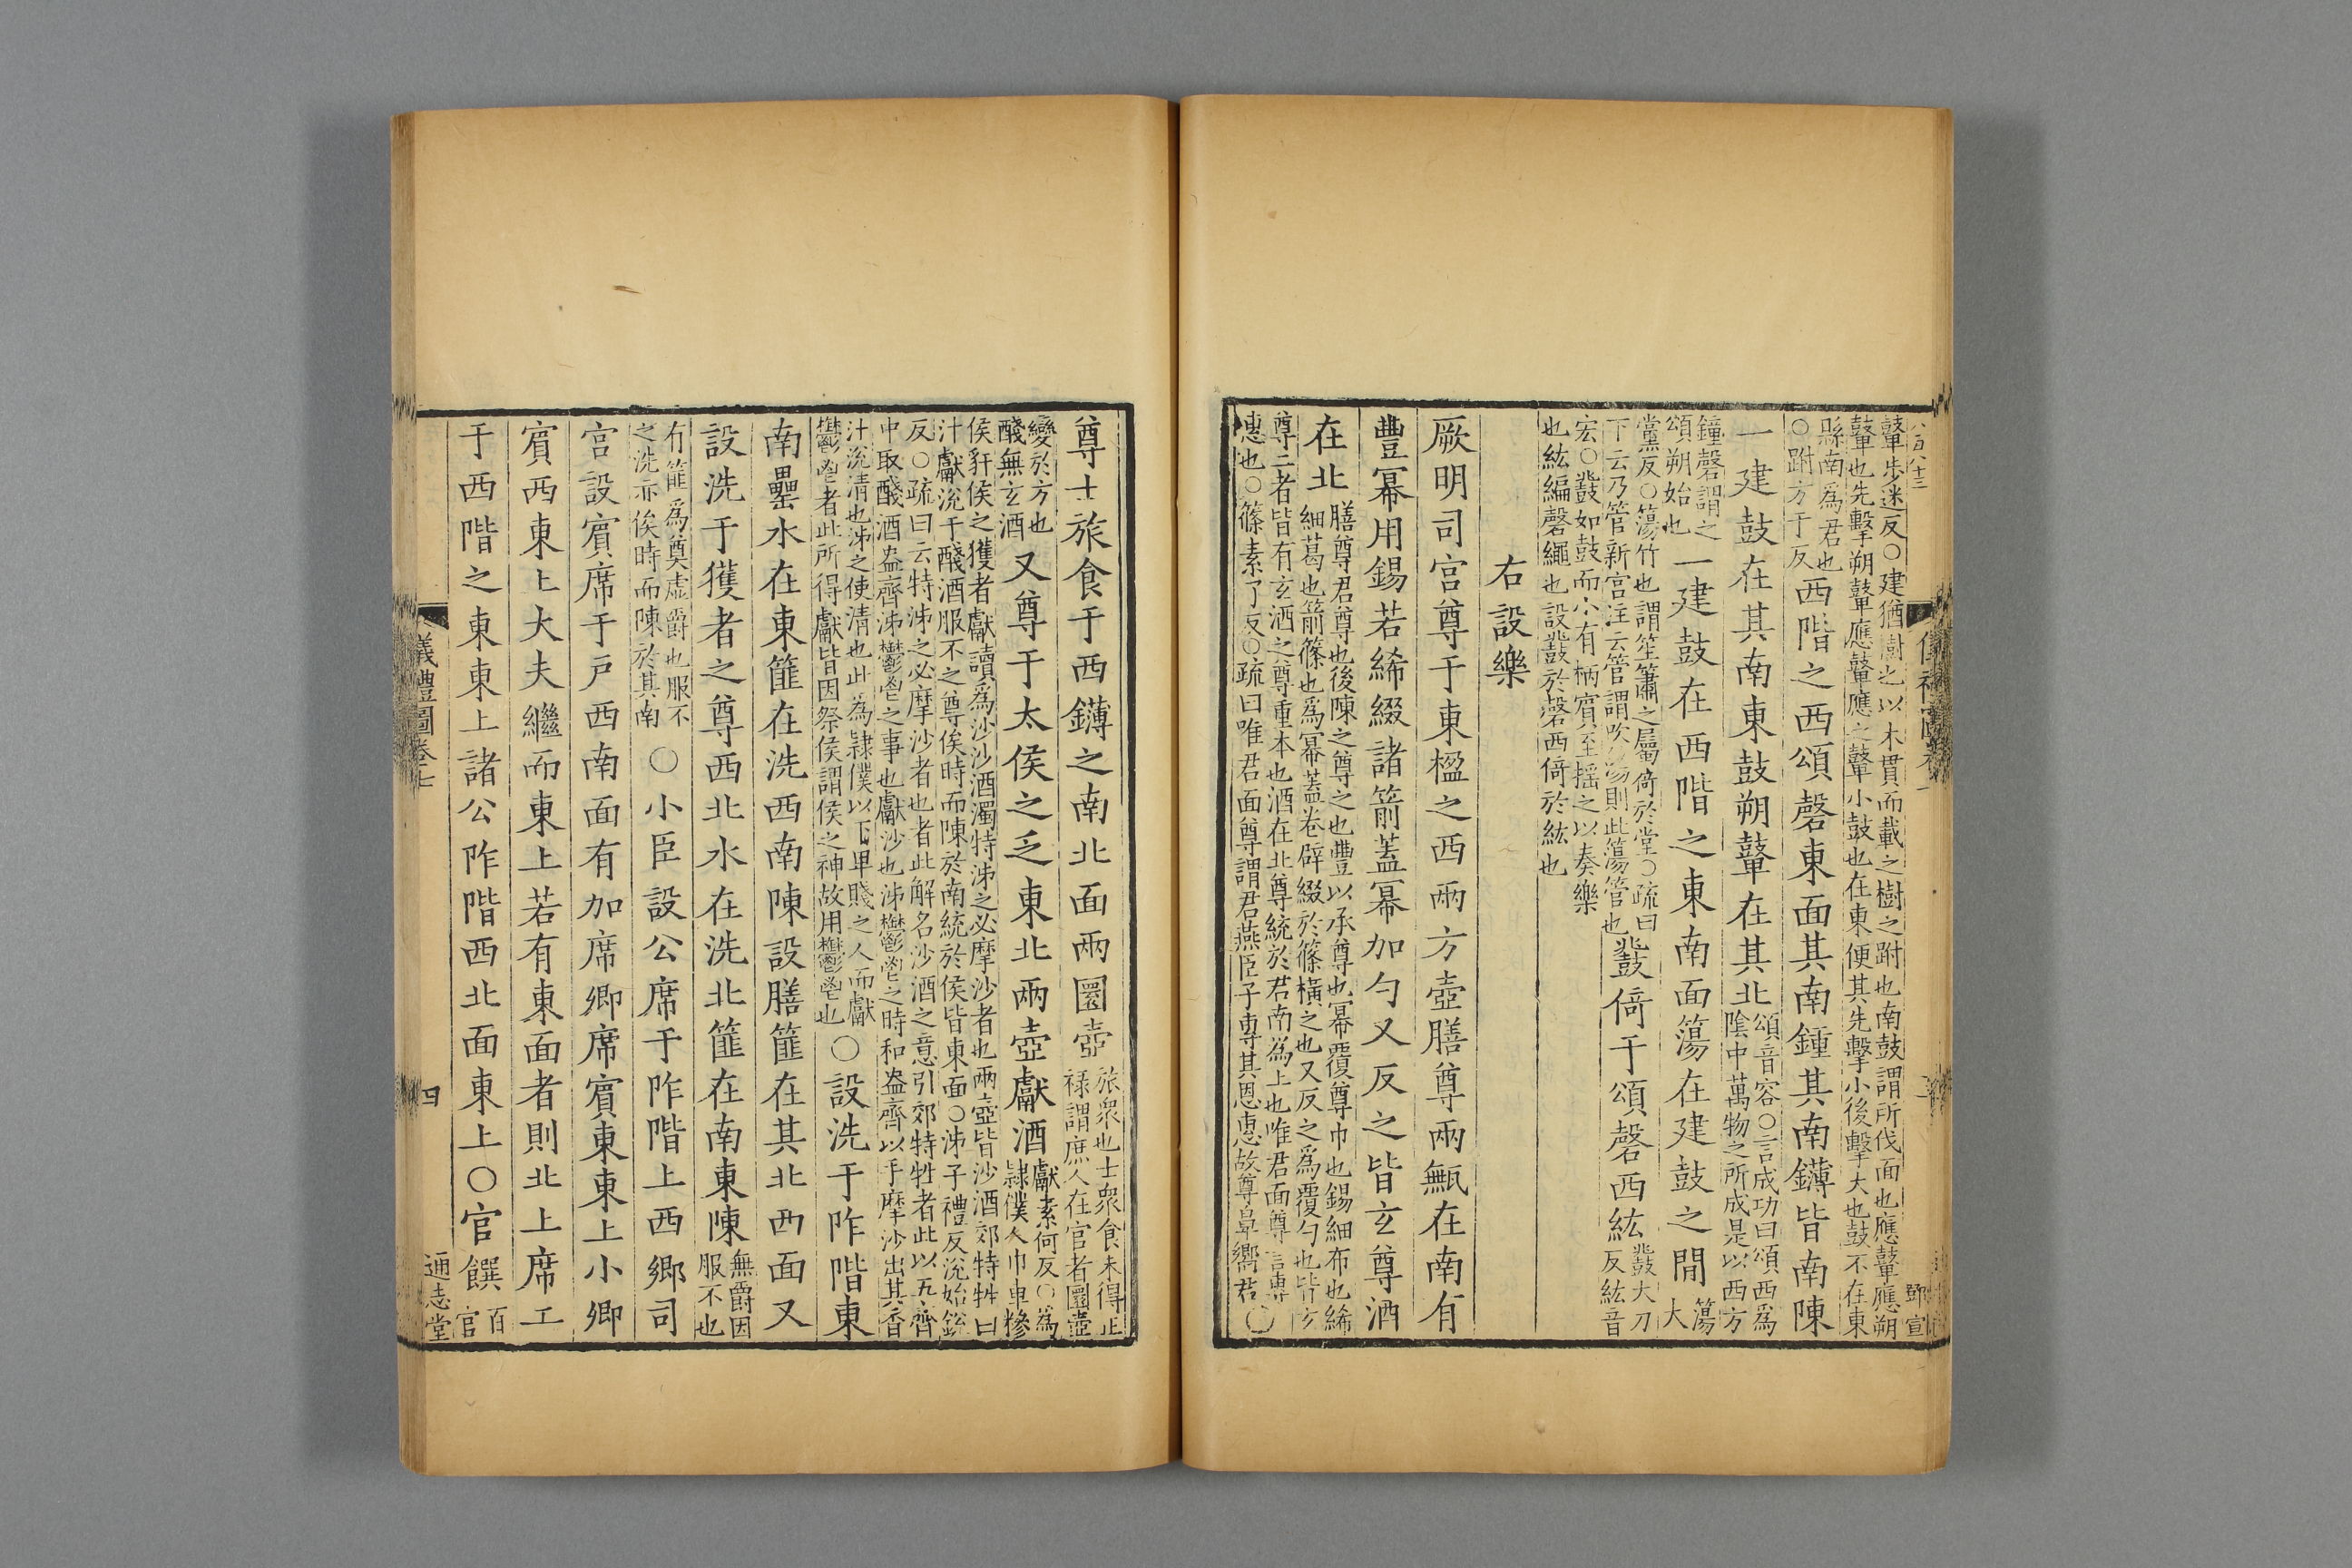 鼙步迷反○建猶樹也以木貫而載之樹之跗也南鼓謂所伐面也應鼙應朔
鼙也先擊朔鼙應鼙應之鼙小鼓也在東便其先擊小後擊大也鼓不在東
縣南爲君也
○跗方于反
西階之西頌磬東面其南鍾其南鑮皆南陳
一建鼓在其南東鼓朔鼙在其北
頌音容○言成功曰頌西爲
陰中萬物之所成是以西方
鐘磬謂之
頌朔始也
一建鼓在西階之東南面簜在建鼓之閒
簜大
黨反○簜竹也謂笙簫之屬倚於堂○疏曰
下云乃管新宮注云管謂吹簜則此簜管也
鼗倚于頌磬西紘
鼗大刀
反紘音
宏○鼗如鼓而小有柄賓至搖之以奏樂
也紘編磬繩也設鼗於磬西倚於紘也
右設樂
厥明司宮尊于東楹之西兩方壺膳尊兩甒在南有
豐冪用錫若絺綴諸箭蓋冪加勺又反之皆玄尊酒
在北
膳尊君尊也後陳之尊之也豐以承尊也冪覆尊巾也錫細布也絺
細葛也箭篠也爲冪蓋卷辟綴於篠橫之也又反之爲覆勺也皆玄
尊二者皆有玄酒之尊重本也酒在北尊統於君南爲上也唯君面尊言專
惠也○篠素了反○疏曰唯君面尊謂君燕臣子專其恩惠故尊鼻嚮君○
尊士旅食于西鑮之南北面兩圜壺
旅衆也士衆食未得正
祿謂庶人在官者圜壺
變於方也
醆無玄酒
又尊于大侯之乏東北兩壺獻酒
獻素何反○爲
隸僕人巾車糝
侯豻侯之獲者獻讀爲沙沙酒濁特泲之必摩沙者也兩壺皆沙酒郊特牲曰
汁獻涗于醆酒服不之尊俟時而陳於南統於侯皆東面○泲子禮反涗始銳
反○疏曰云特泲之必摩沙者也者此解名沙酒之意引郊特牲者此以五齊
中取醆酒盎齊泲鬱鬯之事也獻沙也泲鬱鬯之時和盎齊以手摩沙出其香
汁涗清也泲之使清也此爲隸僕以下卑賤之人而獻
鬱鬯者此所得獻皆因祭侯謂侯之神故用鬱鬯也
○設洗于阼階東
南罍水在東篚在洗西南陳設膳篚在其北西面又
設洗于獲者之尊西北水在洗北篚在南東陳
無爵因
服不也
有篚爲奠虛爵也服不
之洗亦俟時而陳於其南
○小臣設公席于阼階上西鄉司
宮設賓席于戶西南面有加席卿席賓東東上小卿
賓西東上大夫繼而東上若有東面者則北上席工
于西階之東東上諸公阼階西北面東上○官饌
百
官
儀禮圖卷七
四
通志堂